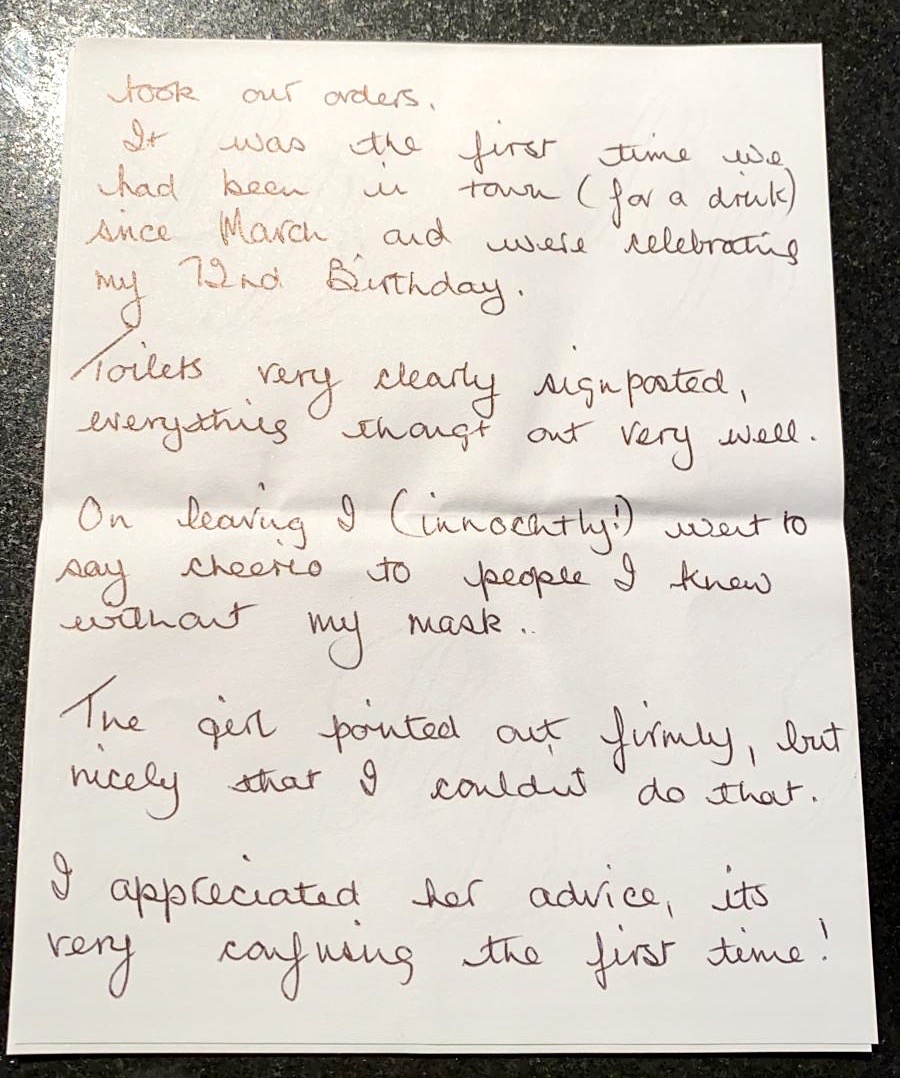 took our orders.
It was the first time we
had been in town (for a drink)
since March and were celebrating
my 72nd Birthday.
Toilets very clearly signposted,
everything thougt out very well.
On leaving I (innocently!) went to
say cheerio to people I knew
without my mask..
The girl pointed out firmly, but
nicely that I couldnt do that.
I appreciated her advice, its
very confusing the first time!